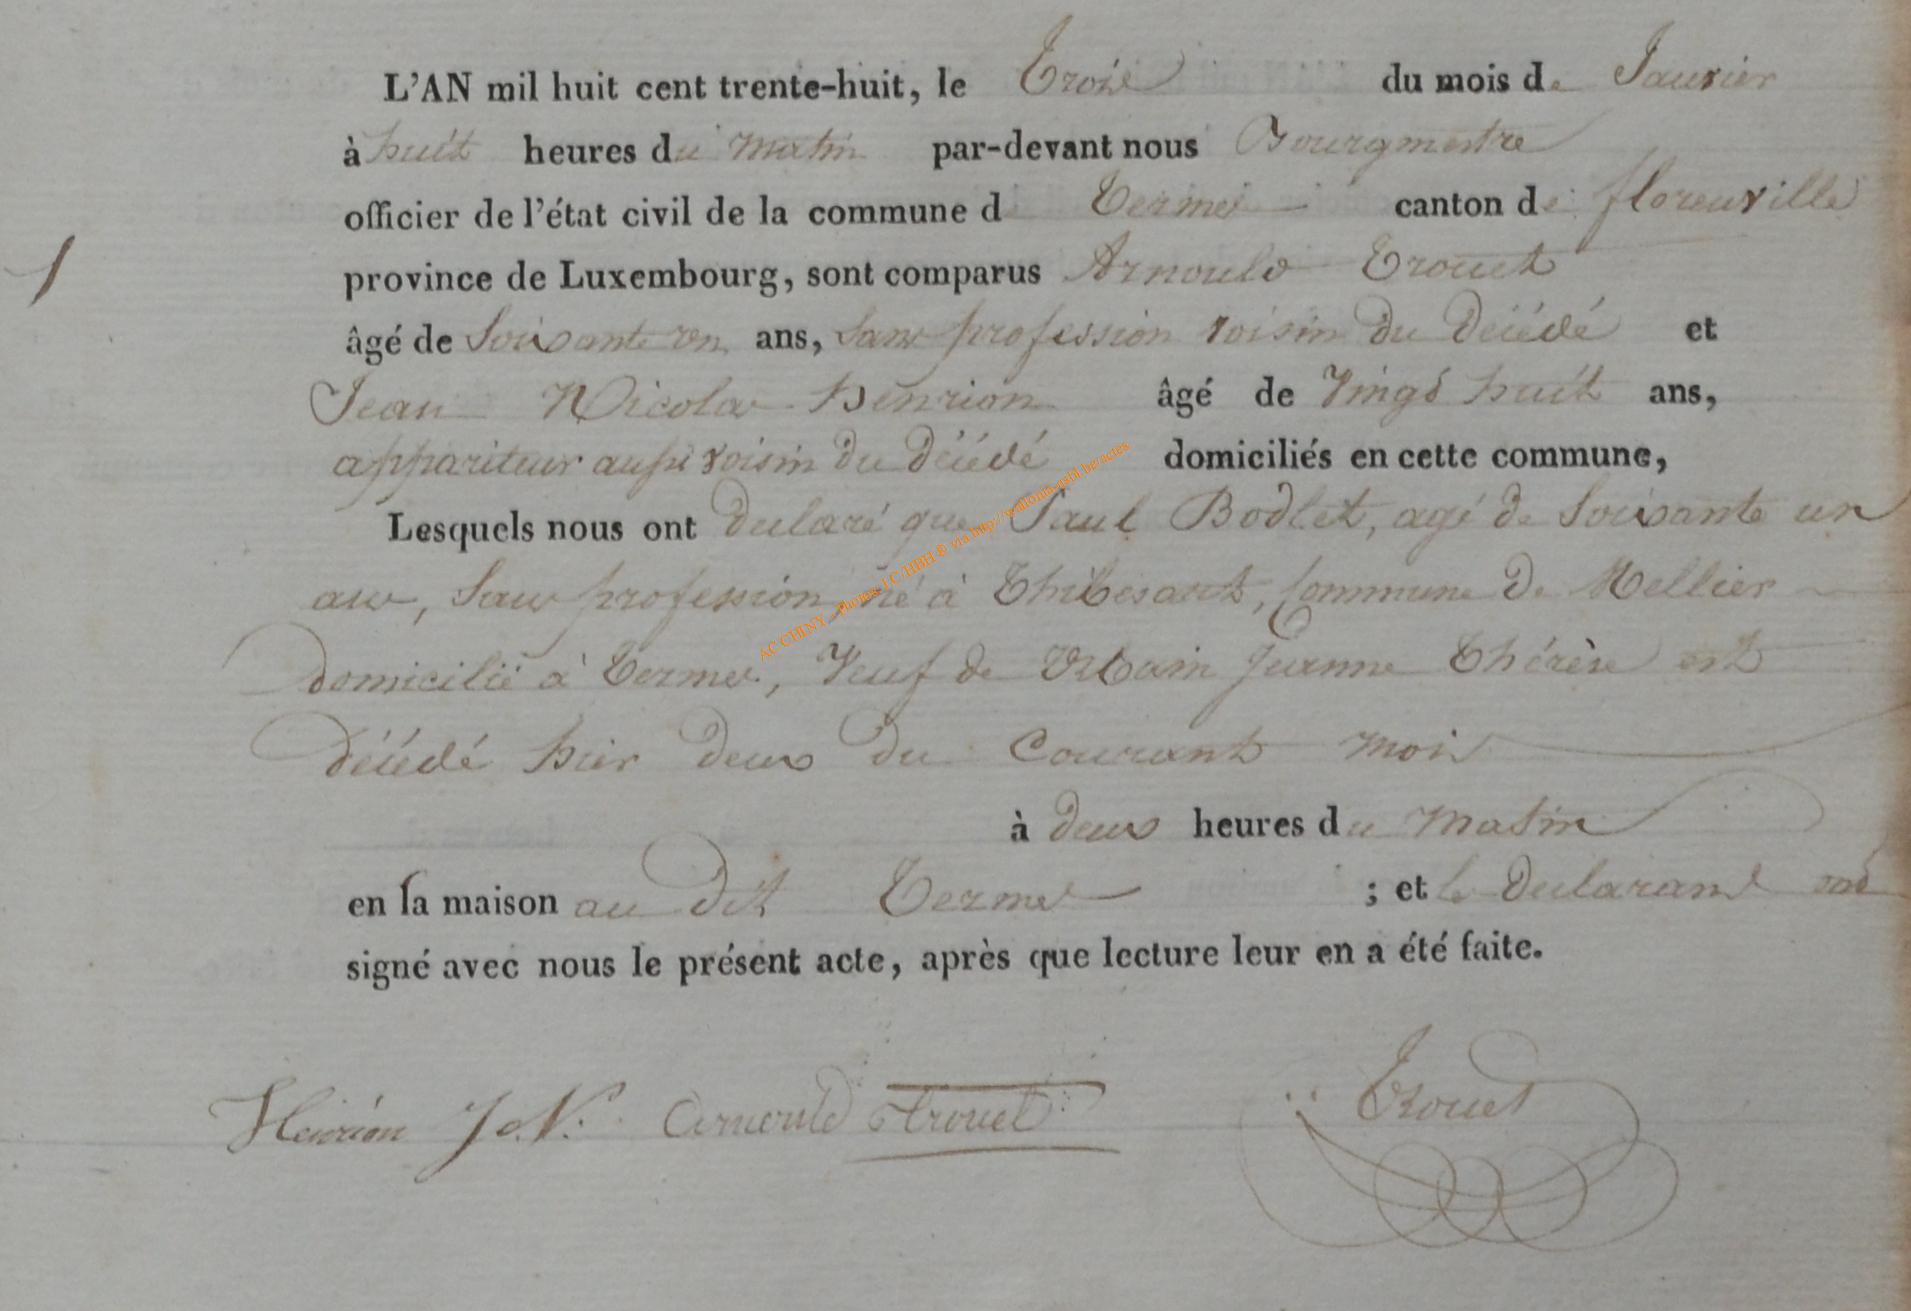 L'AN mil huit cent trente-huit, le Trois du mois de Janvier
à huit heures du matin par-devant nous Bourgmestre
officier de l'état civil de la commune de Termes canton de florenville
1
province de Luxembourg, sont comparus Arnould Trouet
âgé de Soixante un ans, sans profession voisin du décédé et
Jean Nicolas henrion âgé de Vingt huit ans,
appariteur aussi voisin du décédé domiciliés en cette commune,
Lesquels nous ont declaré que Paul Bodlet, agé de Soixante un
ans, sans profession, né à Thibesart, Commune de Mellier
domicilié à Termes, Veuf de Urbain Jeanne Thérèse est
décédé hier deux du Courant mois
à deux heures du matin
en sa maison au dit Termes ; et les declarans ont
signé avec nous le présent acte, après que lecture leur en a été faite.
Henrion J. N. Arnould Trouet Trouet
AC CHINY - Photos J-C HBH ® via http://wallonia-asbl.be/actes